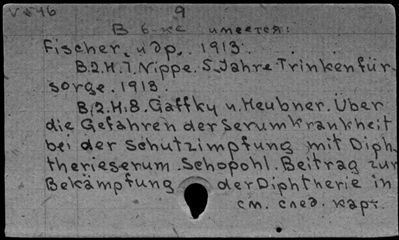 V 546 9
В б-ке имеется:
Fischer, и др. 1913.
B.2.H.7. Nippe. 5 Jahre Trinkenfür-
sorge. 1913.
B.2.H.8. Gaffky u. Heubner. Über
die Gefahren der Serumkrankheit
bei der Schutzimpfung mit Diph-
therieserum. Schopohl. Beitrag zur
Bekämpfung der Diphtherie in
см. след. карт.